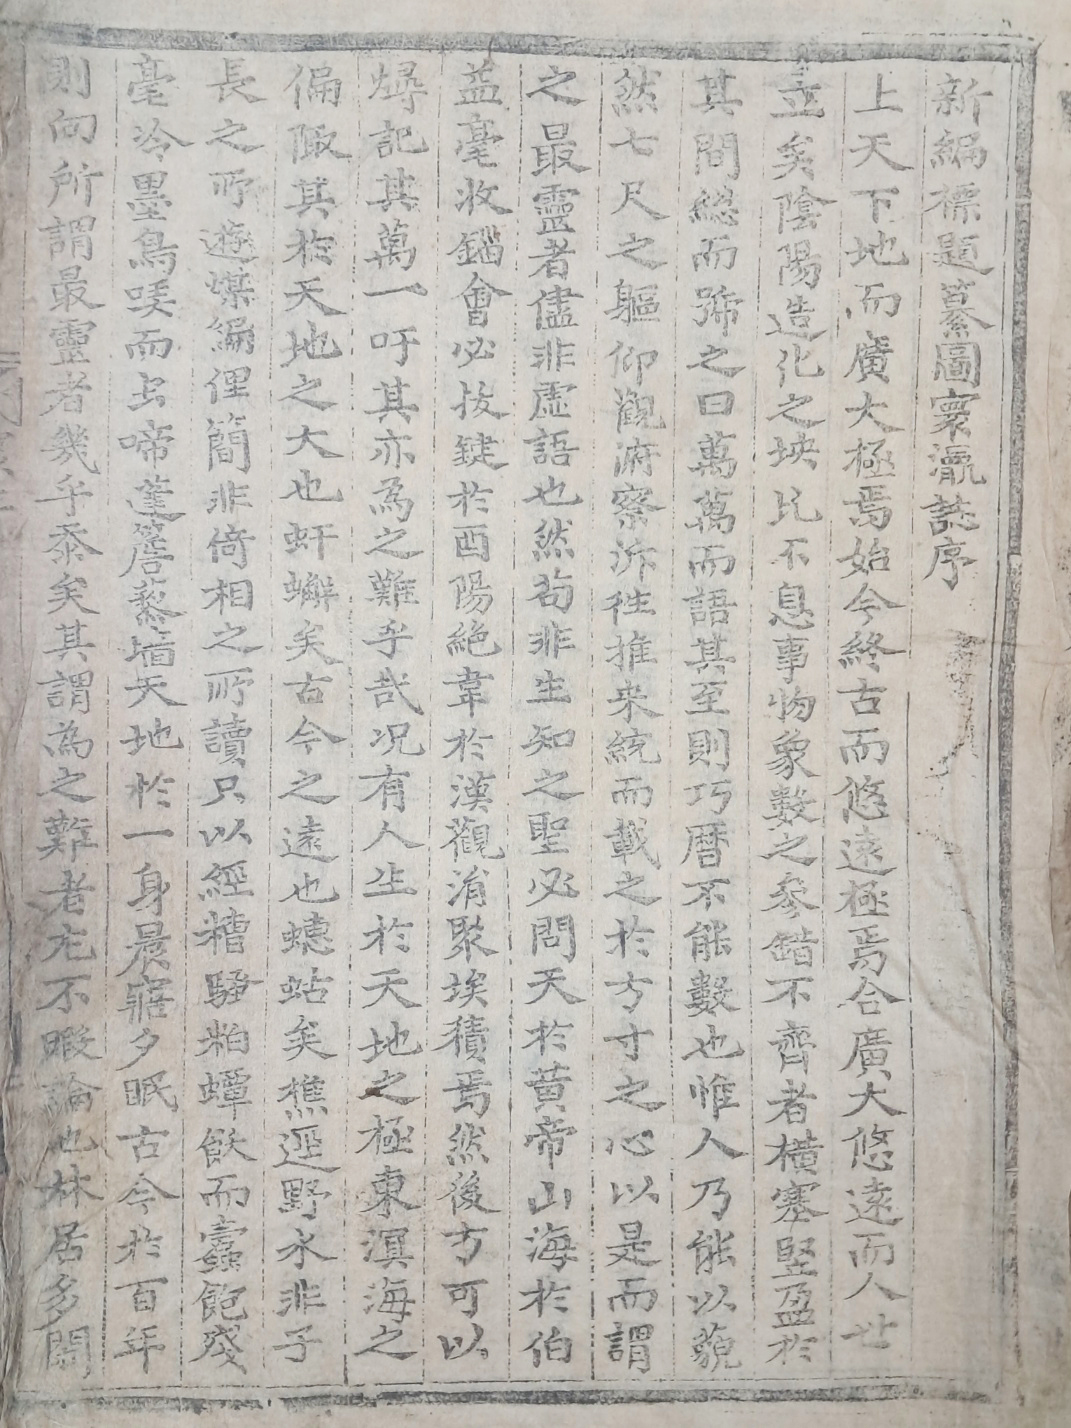 新編標題纂圖寰瀛誌序
上天下地而廣大極焉始今終古而悠遠極焉合廣大悠遠而人世
立矣陰陽造化之坱圠不息事物象數之參錯不齊者橫塞竪盈於
其間緫而號之曰萬萬而語其至則巧曆不能數也惟人乃能以藐
然七尺之軀仰觀俯察泝徃推来統而載之於方寸之心以是而謂
之最靈者儘非虛語也然苟非生知之聖必問天於黄帝山海於伯
益毫收錙會必抜鍵於酉陽絶韋於漢觀涓聚埃積焉然後方可以
燖記其萬一吁其亦為之難乎哉况有人生於天地之極東溟海之
偏陬其於天地之大也蚈蠏矣古今之遠也蟪蛄矣樵遅野水非子
長之所遊煤編俚簡非倚相之所讀只以經糟騷粕蟫飫而蠧飽殘
毫冷墨鳥唉而虫啼蓬簷藜墻天地於一身晨寤夕眠古今於百年
則向所謂最靈者幾乎忝矣其謂為之難者尤不暇論也林居多閒